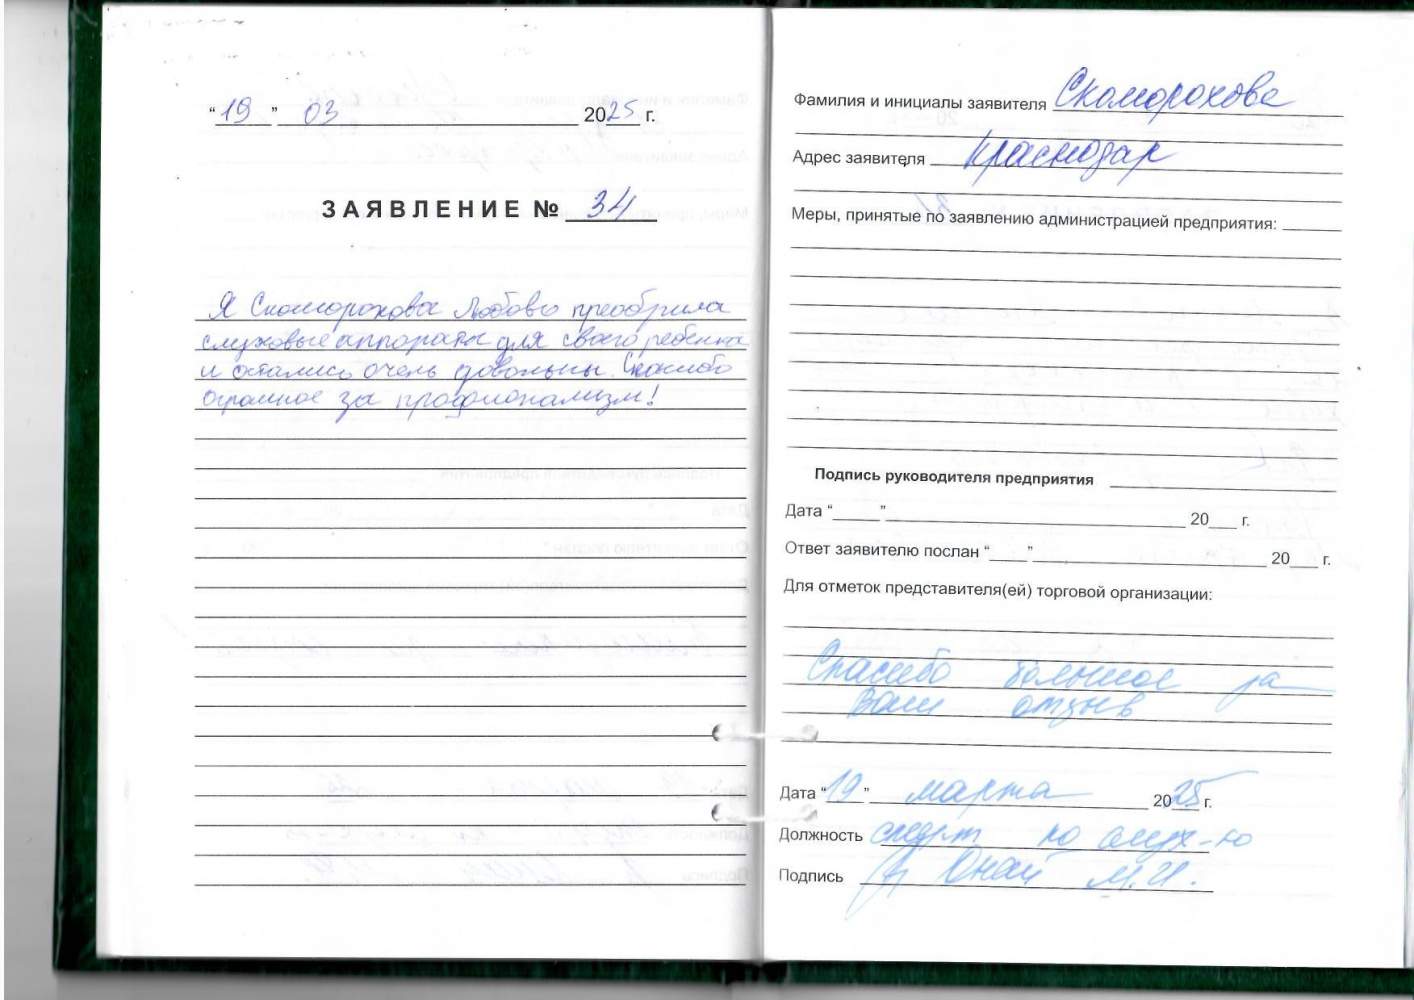 “19” 03 2025 г.
ЗАЯВЛЕНИЕ № 34
Я Скоморохова Любовь преобрила
слуховые аппараты для своего ребенка
и остались очень довольны. Спасибо
огромное за профионализм!
Фамилия и инициалы заявителя Скоморохове
Адрес заявителя Краснодар
Меры, принятые по заявлению администрацией предприятия:
Подпись руководителя предприятия
Дата “ ” 20 г.
Ответ заявителю послан “ ” 20 г.
Для отметок представителя(ей) торговой организации:
Спасибо большое за
Ваш отзыв
Дата “19” марта 2025 г.
Должность по слух-ю
Подпись М.И.